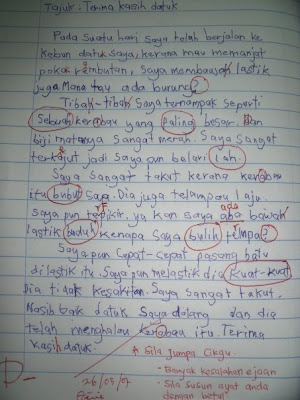 Tajuk: Terima kasih datuk
Pada suatu hari saya telah berjalan ke
kebun datuk saya, kerana mau memanjat
pokok rambutan, Saya membawak lastik
juga Mana tau ada burung?
Tibah-tibah Saya ternampak seperti
Sebuah kerabau yang paling besar. Dan
biji matanya sangat merah. Saya sangat
terkajut jadi Saya pun belari lah.
Saya Sangat takut kerana kerabau
itu bubut saya. Dia juga telampau laju.
saya pun tepikir, ya kan saya aba bawak
lastik baduh kenapa Saya bulih telmpa?
Saya pun Cepat-Cepat pasang batu
di lastik itu. Saya pun melastik dia kuat-kuat
dia tidak kesakitan. Saya sangat takut.
Nasib baik datuk Saya datang dan dia
telah menghalau kerabau itu. Terima
kasih datuk.
* Sila Jumpa Cikgu
- Banyak kesalahan ejaan
- Sila susun ayat anda
dengan betul
D-
26/05/07